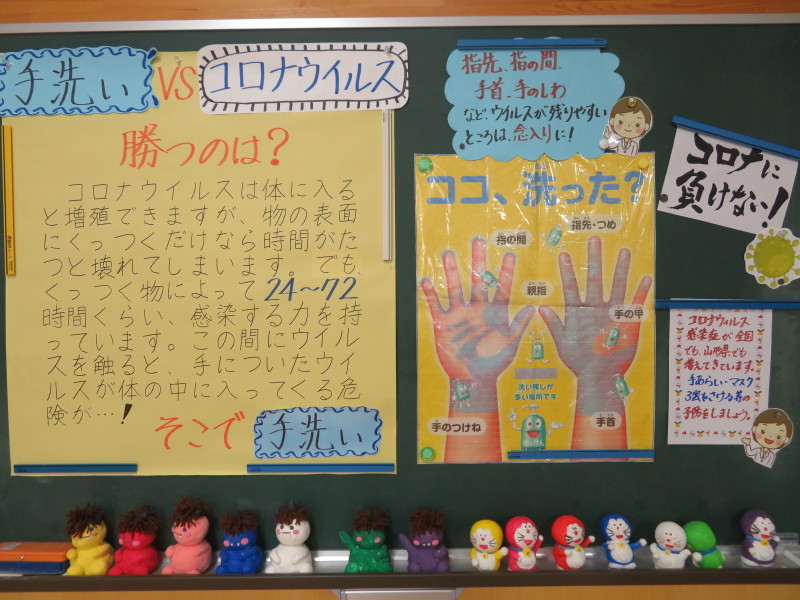 手洗い
VS
コロナウイルス
勝つのは?
コロナウイルスは体に入る
と増殖できますが、物の表面
にくっつくだけなら時間がた
つと壊れてしまいます。でも、
くっつく物によって24〜72
時間くらい、感染する力を持
っています。この間にウイル
スを触ると、手についたウイ
ルスが体の中に入ってくる危
険が…!
そこで
手洗い
指先、指の間、
手首、手のしわ
など、ウイルスが残りやすい
ところは、念入りに!
ココ、洗った?
指先・つめ
指の間
親指
手の甲
洗い残しが
多い場所です
手のつけね
手首
コロナに
負けない!
コロナウイルス
感染症が全国
でも、山形県でも
増えてきています。
手あらい・マスク
3密をさける等の
予防をしましょう。